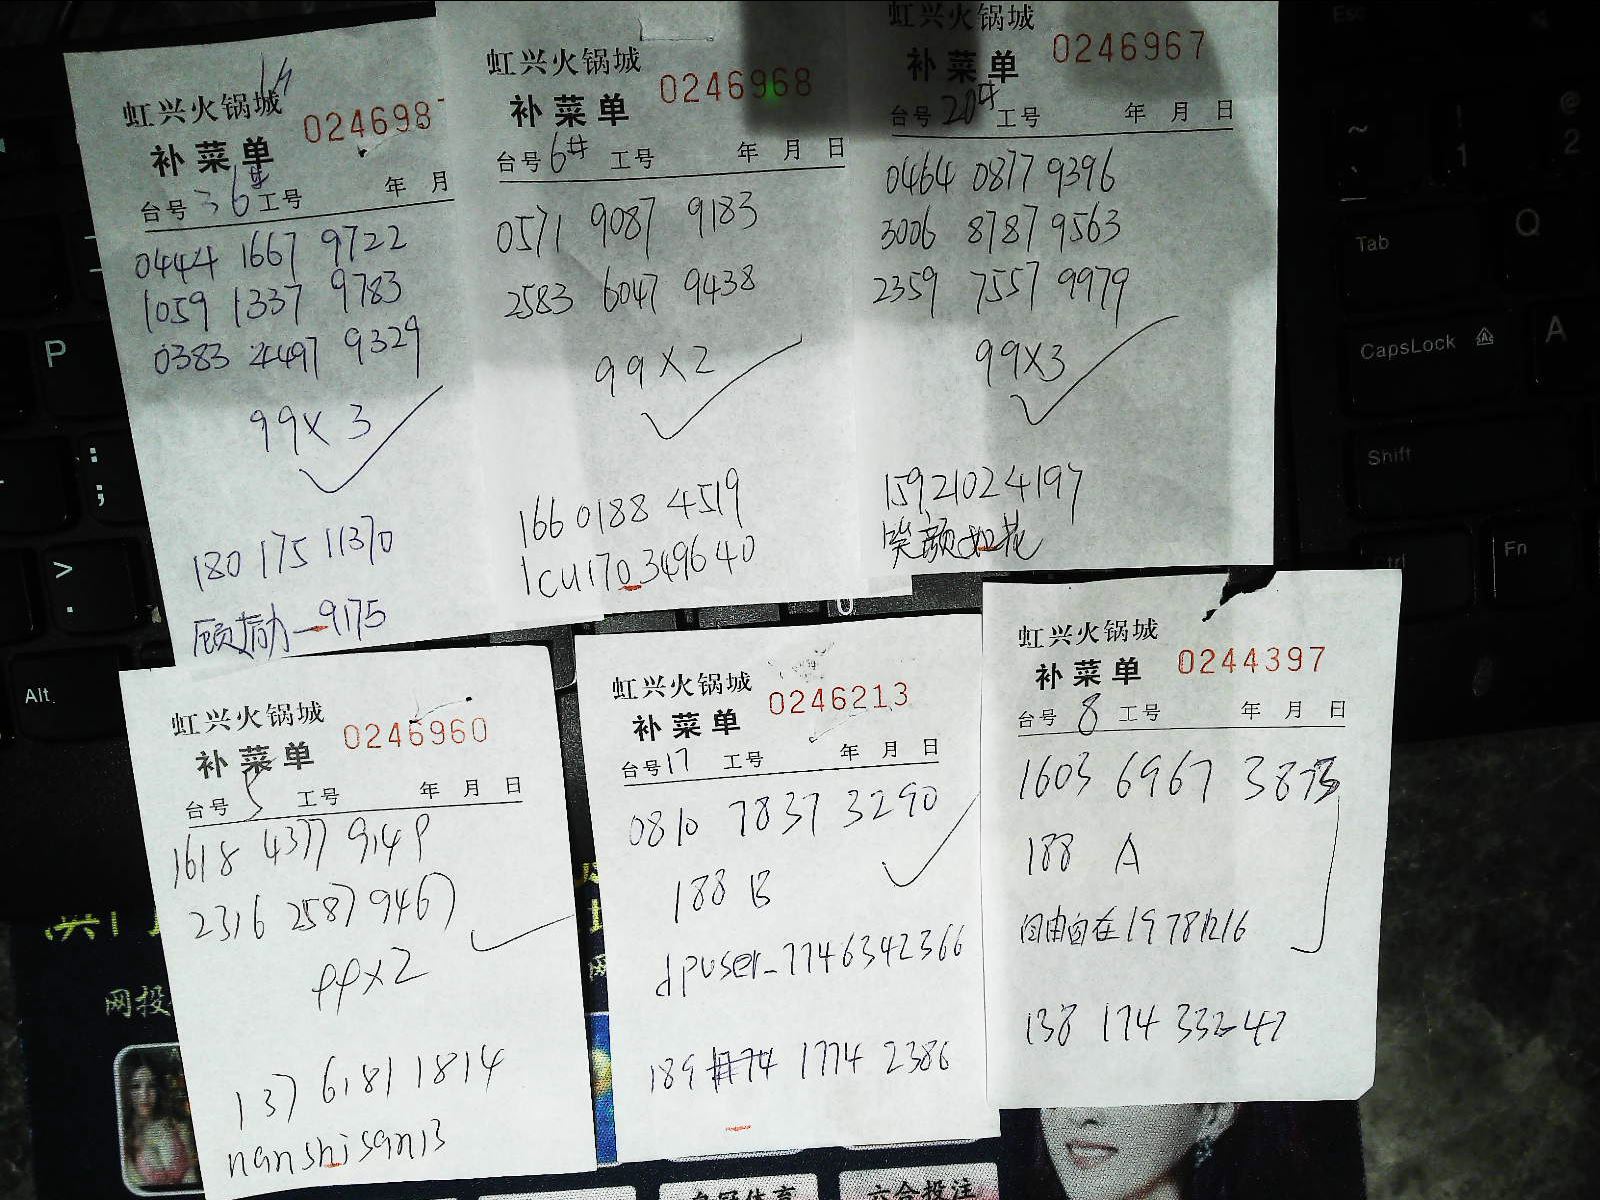 虹兴火锅城
补菜单 024698
台号 36# 工号 年 月
0444 1667 9722
1059 1337 9783
0383 4497 9329
99X3
180 175 11370
顾励_9175
虹兴火锅城
补菜单 0246968
台号 6# 工号 年 月 日
0571 9087 9183
2583 6047 9438
99X2
166 0188 4519
1cu170349640
虹兴火锅城
补菜单 0246967
台号 20# 工号 年 月 日
0464 0877 9396
3006 8787 9563
2359 7557 9979
99X3
15921024197
笑颜如花
虹兴火锅城
补菜单 0246960
台号 5 工号 年 月 日
1618 4377 9149
2316 2587 9467
99X2
137 6181 1814
nanshisan13
虹兴火锅城
补菜单 0246213
台号 17 工号 年 月 日
0810 7837 3290
188 B
dpuser_7746342366
189 1774 2386
虹兴火锅城
补菜单 0244397
台号 8 工号 年 月 日
1603 6967 3875
188 A
自由自在19781216
138 174 332 42
Tab
CapsLock
Shift
Fn
Alt
P
Q
A
网投
六合投注